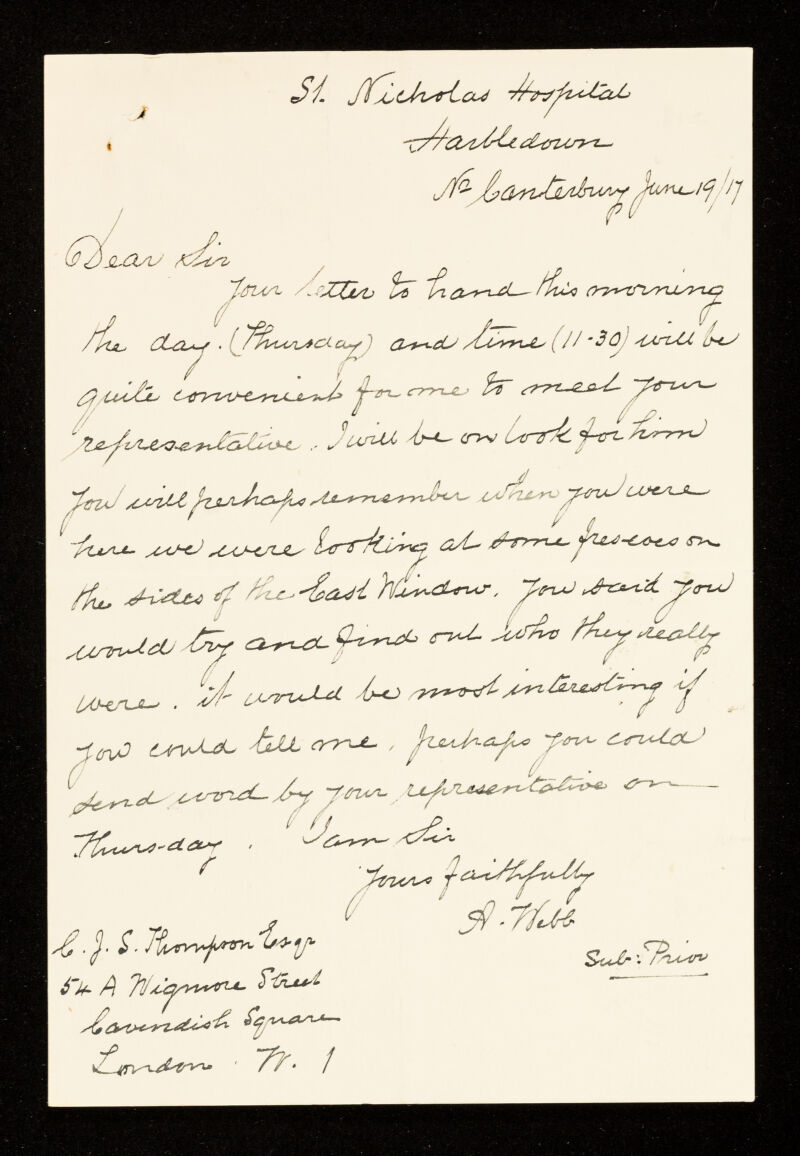 St. Nicholas Hospital
Harbledown
Nr Canterbury June 19/17
Dear Sir
Your letter to hand this morning
the day. (Thursday) and time (11-30) will be
quite convenient for me to meet your
representative. I will be on look for him
You will perhaps remember when you were
here we were looking at some frescoes on
the sides of the East Window. You said you
would try and find out who they really
were. it would be most interesting if
you could tell me. perhaps you could
send word by your representative on
Thursday. I am Sir
Yours faithfully
A. Webb
Sub: Prior
C. J. S. Thompson Esqr
54 A Wigmore Street
Cavendish Square
London. W. 1